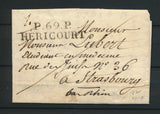 P.69.P.
HÉRICOURT
Monsieur
Monsieur Liebert
Etudiant en médecine
rue des Juifs N° 26
à Strasbourg
bas Rhin